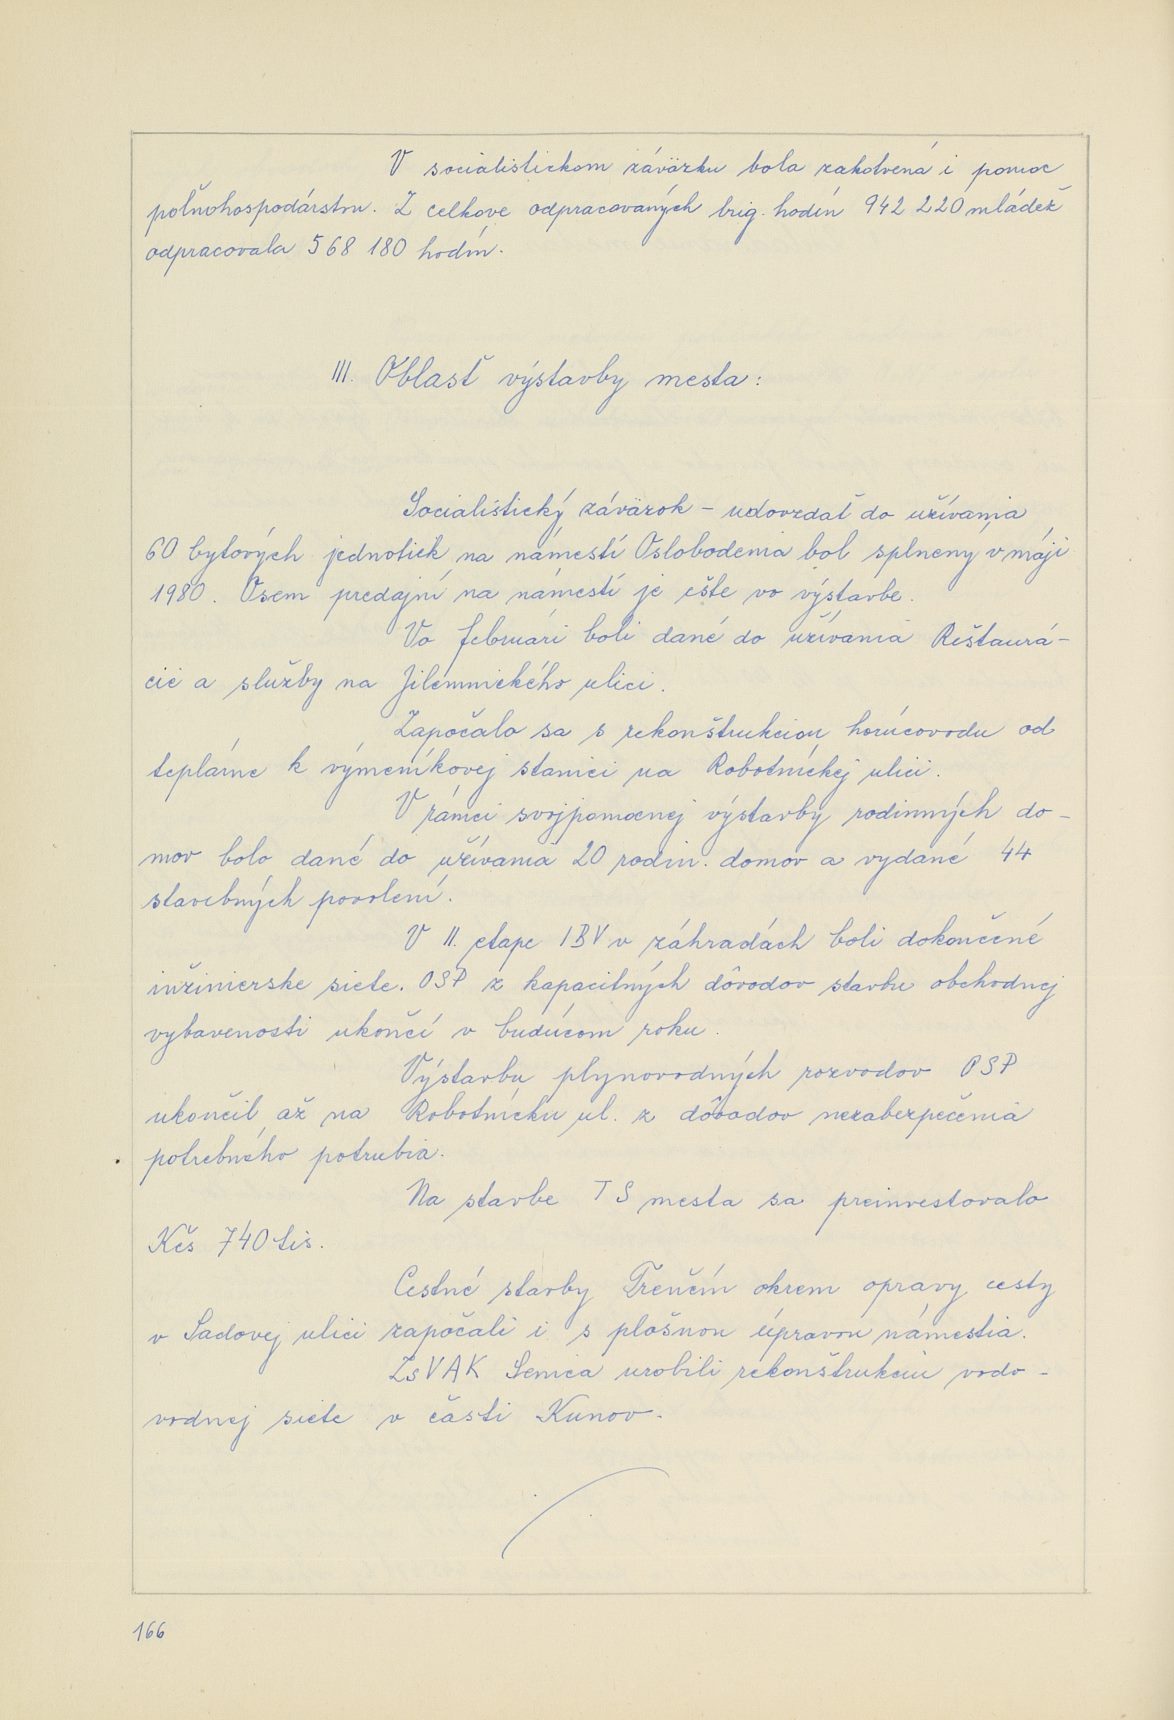 V socialistickom záväzku bola zakotvená i pomoc
poľnohospodárstvu. Z celkove odpracovaných brig. hodín 942 220 mládež
odpracovala 568 180 hodín.
III. Oblasť výstavby mesta:
Socialistický záväzok - udovzdať do užívania
60 bytových jednotiek na námestí Oslobodenia bol splnený v máji
1980. Osem predajní na námestí je ešte vo výstavbe.
Vo februári boli dané do užívania Reštaurá-
cie a služby na Jilemnického ulici.
Započalo sa s rekonštrukciou horúcovodu od
teplárne k výmeníkovej stanici na Robotníckej ulici.
V rámci svojpomocnej výstavby rodinných do-
mov bolo dané do užívania 20 rodin. domov a vydané 44
stavebných povolení.
V II. etape IBV v záhradách boli dokončené
inžinierske siete. OSP z kapacitných dôvodov stavbu obchodnej
vybavenosti ukončí v budúcom roku.
Výstavbu plynovodných rozvodov PSP
ukončil až na Robotnícku ul. z dôvodov nezabezpečenia
potrebného potrubia.
Na stavbe TS mesta sa preinvestovalo
Kčs 740 tis.
Cestné stavby Trenčín okrem opravy cesty
v Sadovej ulici započali i s plošnou úpravou námestia.
ZsVAK Senica urobili rekonštrukciu vodo-
vodnej siete v časti Kunov.
166